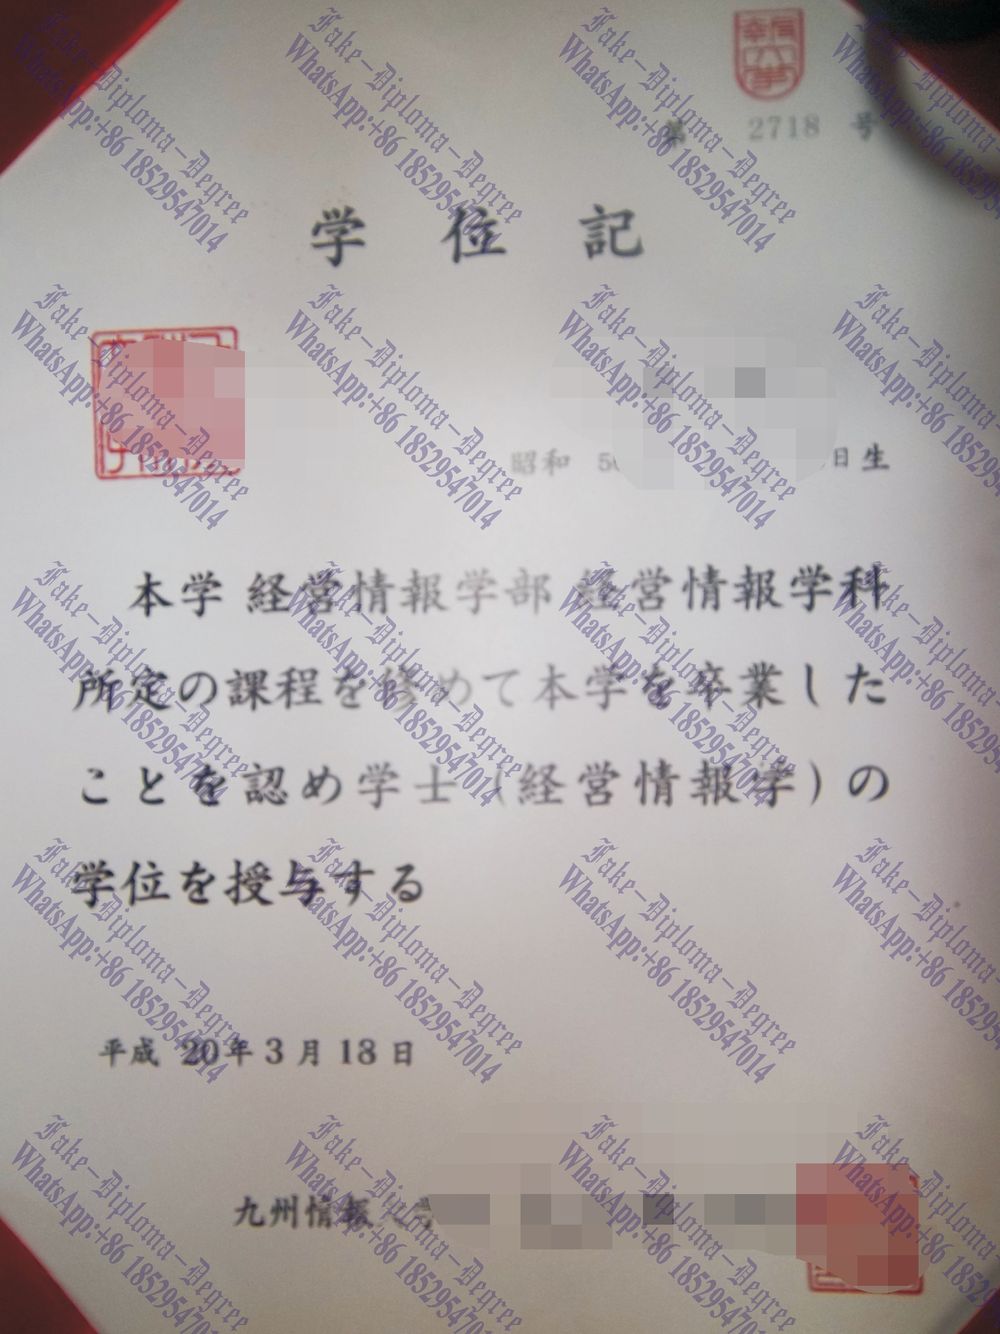 第 2718 号
学位記
昭和 5
日生
本学 経営情報学部 経営情報学科
所定の課程を修めて本学を卒業した
ことを認め学士（経営情報学）の
学位を授与する
平成 20年3月18日
九州情報大学
Fake-Diploma-Degree
WhatsApp:+86 18529547014